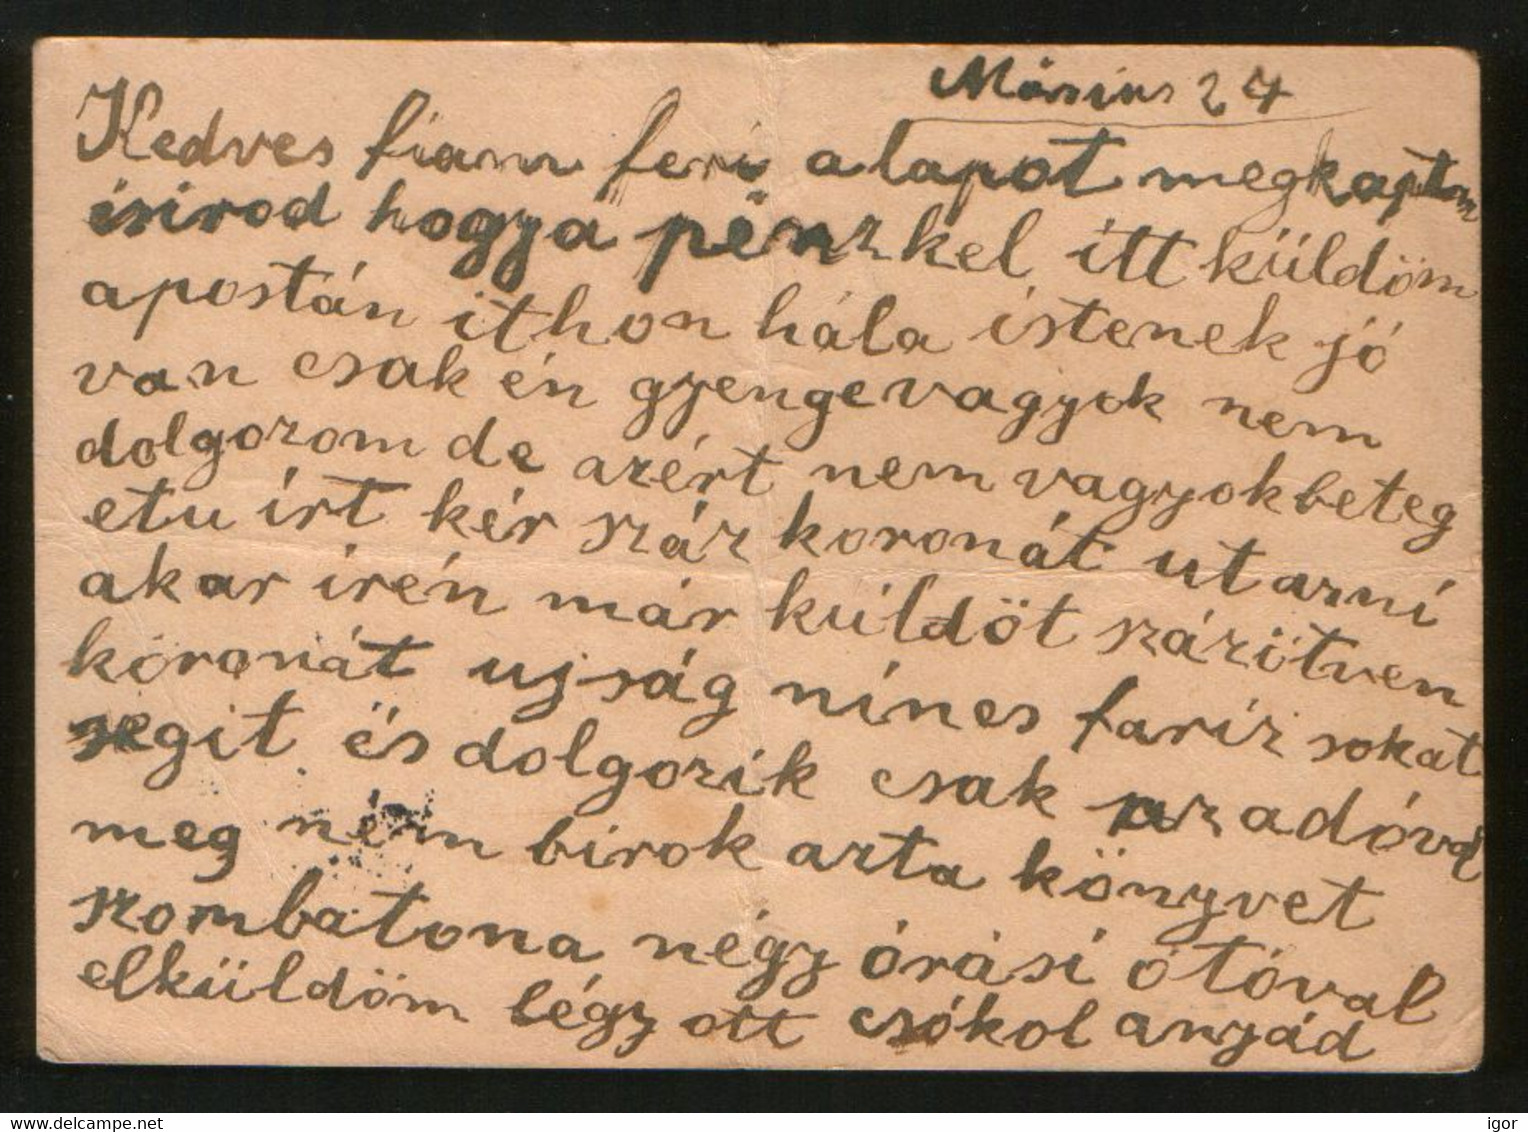 Március 27
Kedves fiam feri a lapot megkaptm
ésirod hogya pénz kel itt küldöm
apostán ithon hála istenek jó
van csak én gyengevagyok nem
dolgozom de azért nem vagyokbeteg
etu írt kér száz koronát utazni
akar irén már küldöt százötven
koronát ujság nincs fariz sokat
segit és dolgozik csak az adóval
meg ném birok azta könyvet
szombatona négy órási ótóval
elküldöm légy ott csókol anyád
www.delcampe.net
igor